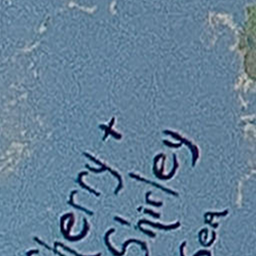 herry +
Shirley
Sea